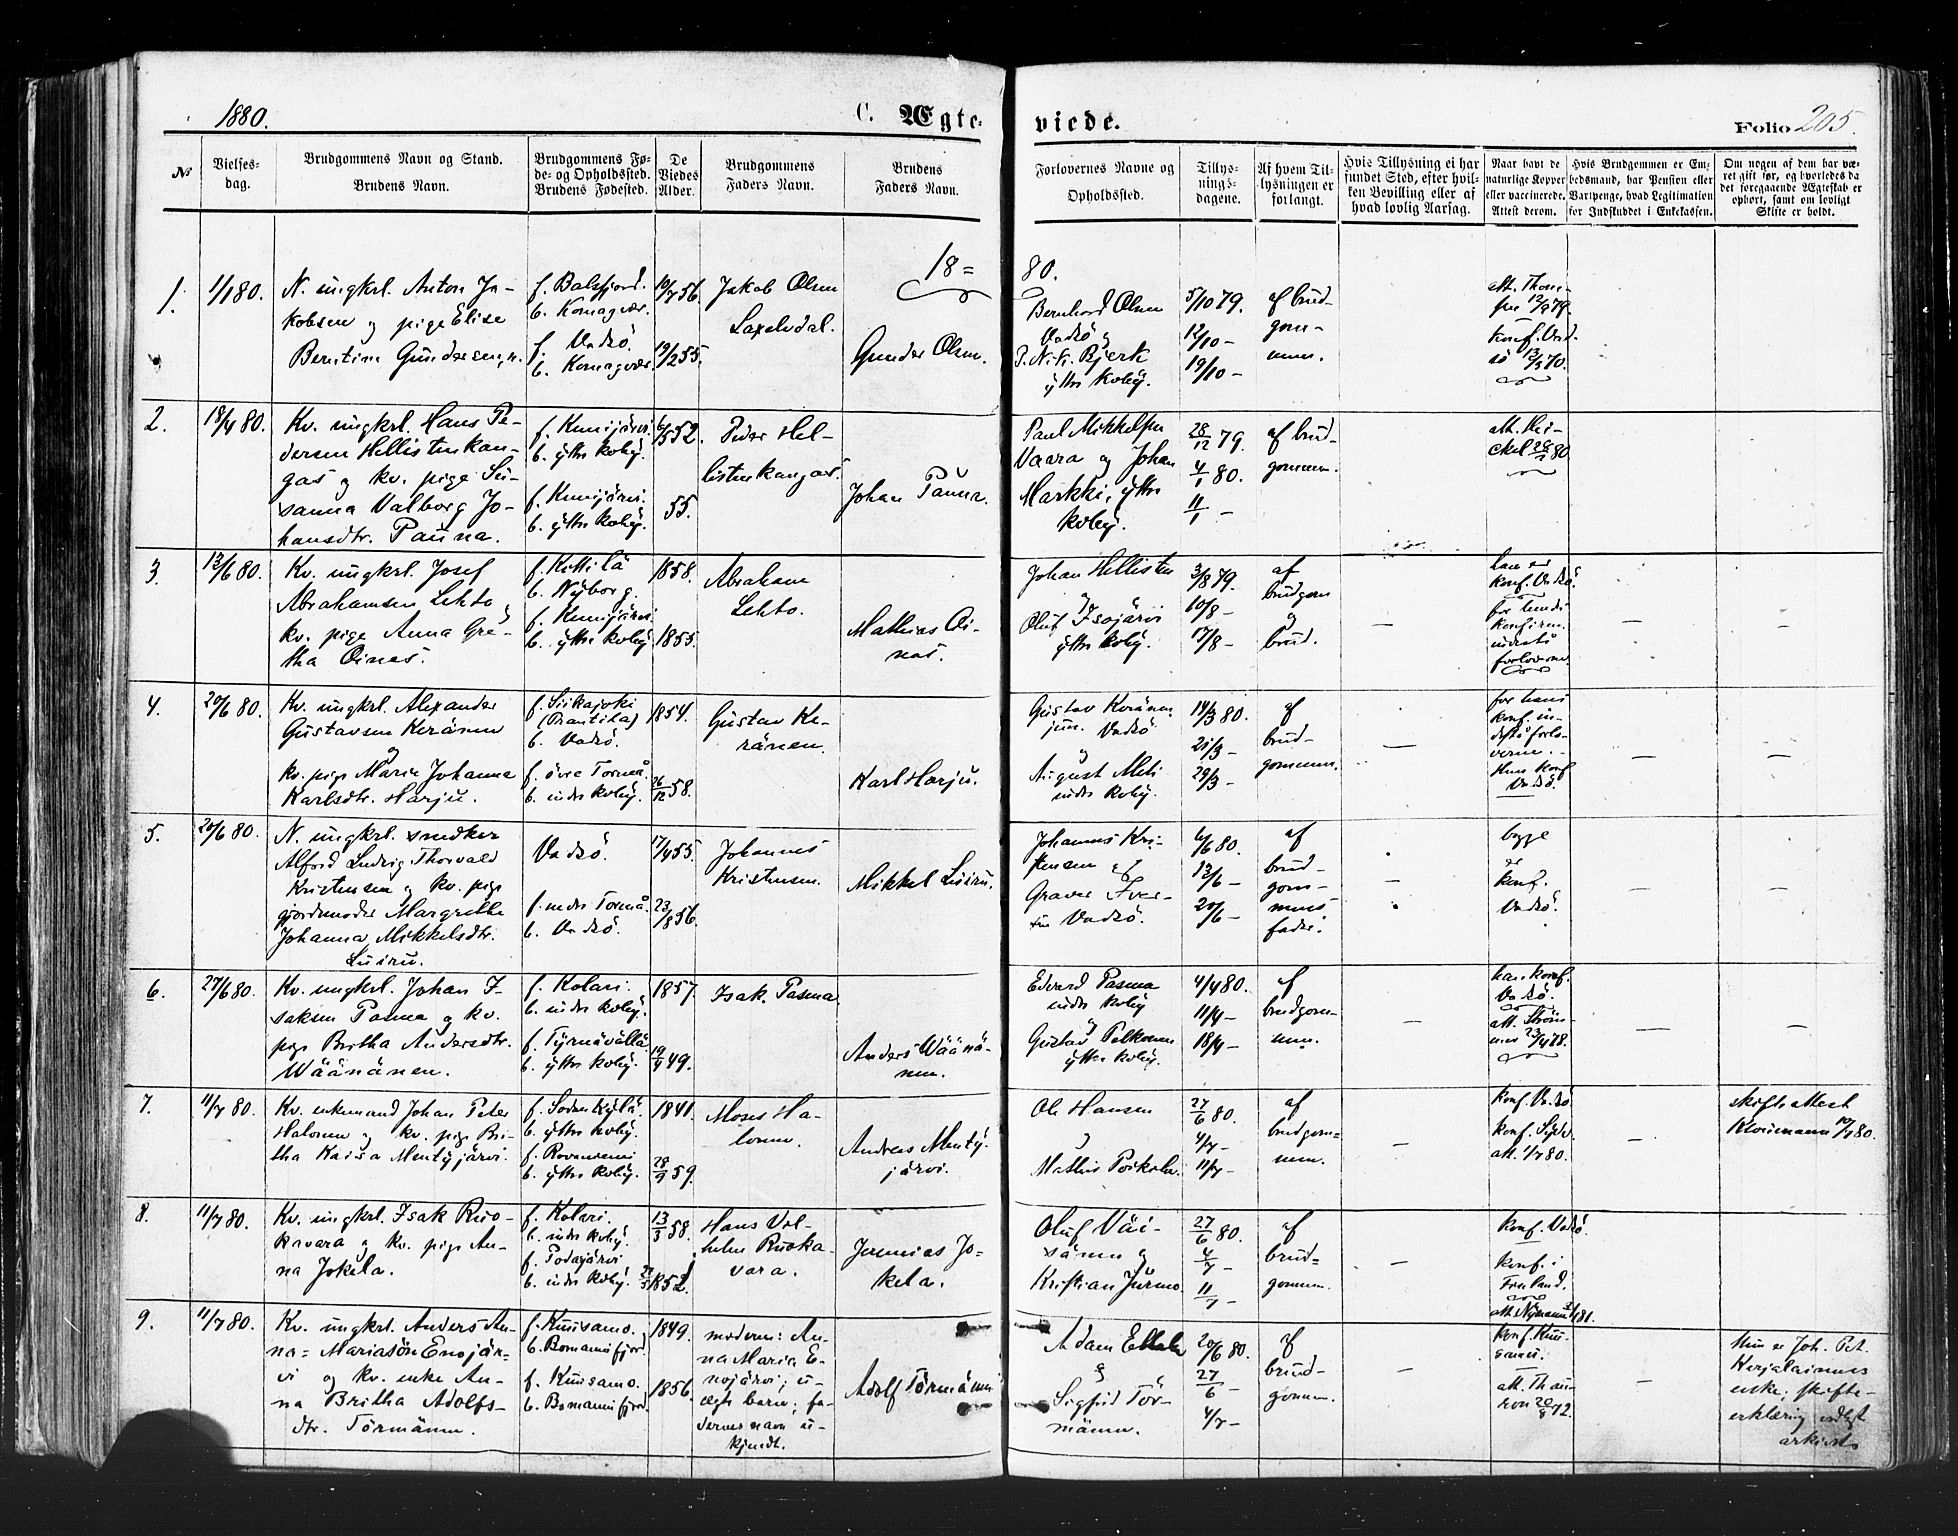 1880.
C. Ægte-
viede.
Folio 205.
№
Vielses-
dag.
Brudgommens Navn og Stand.
Brudens Navn.
Brudgommens Fø-
de- og Opholdssted.
Brudens Fødested.
De
Viedes
Alder.
Brudgommens
Faders Navn.
Brudens
Faders Navn.
Forlovernes Navne og
Opholdssted.
Tillys-
nings-
dagene.
Af hvem Til-
lysningen er
forlangt.
Hvis Tillysning ei har
fundet Sted, efter hvil-
ken Bevilling eller af
hvad lovlig Aarsag.
Naar havt de
naturlige Kopper
eller vaccinerede.
Attest derom.
Hvis Brudgommen er Em-
bedsmand, har Pension eller
Vartpenge, hvad Legitimation
for Indskuddet i Enkekassen.
Om nogen af dem har væ-
ret gift før, og hvorledes da
det foregaaende Ægteskab er
ophørt, samt om lovligt
Skifte er holdt.
18=
80.
1.
1/1 80.
N. ungkrl. Anton Ja-
kobsen og pige Elise
Berntine Gundersen, n.
f. Balsfjord.
b. Komagvær.
f. Vadsö.
b. Komagvær.
10/7 56.
19/2 55.
Jakob Olsen
Laxelvdal.
Gunder Olsen.
Bernhard Olsen
Vadsö og
P. N. K. Bjerk
yttre Kvby.
5/10 79.
12/10 -
19/10 -
af brud-
gom-
men.
att. Thom-
sen
konf. Vad-
sö
2.
18/4 80.
Kv. ungkrl. Hans Pe-
dersen Hellistenkan-
gas og kv. pige Su-
sanna Valborg Jo-
hansdtr. Pauna.
f. Kemijärvi.
b. yttre Kvby.
f. Kemijärvi.
b. yttre Kvby.
6/5 52.
55.
Peder Hel-
listenkangas.
Johan Pauna.
Paul Mikkelsen
Vaara og Johan
Markki, yttre
Kvby.
28/12 79.
4/1 80.
11/1 -
af brud-
gommen.
3.
13/6 80.
Kv. ungkrl. Josef
Abrahamsen Lehto,
kv. pige Anna Gre-
tha Oinas.
f. Kittilä
b. Nyborg.
f. Kemijärvi.
b. yttre Kvby
1858.
1855.
Abraham
Lehto.
Mathias Oi-
nas.
Johan Hellisten
og
Oluf Isojärvi
yttre Kvby.
3/8 79.
10/8 -
17/8 -
af
brudgom
og
brud.
han er
konf. Vadsö
for hendes
konfirm.
indestå
forloverne.
4.
20/6 80.
Kv. ungkrl. Alexander
Gustavsen Keränen
og
kv. pige Maria Johanna
Karlsdtr. Harju.
f. Siikajoki
(Frantsila)
b. Vadsö.
f. övre Torneå.
b. indre Kvby.
1854.
26/12 58.
Gustav Ke-
ränen.
Karl Harju.
Gustav Keränen
jun. Vadsö.
og
August Meti
indre Kvby.
14/3 80.
21/3 -
29/3 -
af
brud-
gommen.
for hans
konf. in-
destå forlo-
verne.
Hun konf
Vadsö.
5.
20/6 80.
N. ungkrl. snedker
Alfred Ludvig Thorvald
Kristensen og kv. pige
gjordmoder Margrethe
Johanna Mikkelsdtr.
Luiru.
Vadsö.
f. nedre Torneå.
b. Vadsö.
17/4 55.
23/8 56.
Johannes
Kristensen.
Mikkel Luiru.
Johannes Kri-
stensen og
Graver Iver-
sen Vadsö.
6/6 80.
13/6 -
20/6 -
af
brud-
gom-
mens
fader.
begge
er
konf.
Vadsö.
6.
27/6 80.
Kv. ungkrl. Johan I-
saksen Pasma og kv.
pige Britha Andersdtr.
Wäänänen.
f. Kolari.
b. indre Kvby.
f. Tyrnävällä.
b. yttre Kvby.
1857.
19/4 49.
Isak Pasma.
Anders Wäänä-
nen.
Edvard Pasma
indre Kvby
og
Gustav Pelkonen
yttre Kvby.
4/4 80.
11/4 -
18/4 -
af
brudgom-
men.
han konf.
Vadsö.
att. Ström-
mer 23/4 78.
7.
11/7 80.
Kv. enkemand Johan Peter
Halonen og kv. pige Bri-
tha Kaisa Mentyjärvi.
f. Sodankylä.
b. yttre Kvby.
f. Rovaniemi
b. yttre Kvby.
1841.
28/9 59.
Moses Ha-
lonen.
Andreas Menty-
järvi.
Ole Hansen
og
Mathis Poikela.
27/6 80.
4/7 -
11/7 -
af
brudgom=
men.
konf. Vadsö
konf. Sydv.
att. 1/7 80.
skifteattest
Klouimann 10/7 80.
8.
11/7 80.
Kv. ungkrl. Isak Ruo-
kavara og kv. pige An-
na Jokela.
f. Kolari.
b. indre Kvby.
f. Pudasjärvi
b. indre Kvby.
13/3 58.
1852.
Hans Vil-
helm Ruoka-
vara.
Jeremias Jo-
kela.
Oluf Väi-
sänen og
Kristian Jurmo.
27/6 80.
4/7 -
11/7 -
af
brud=
gommen.
konf. Vadsö.
konf. i
Finland.
9.
11/7 80.
Kv. ungkrl. Anders An-
na= Mariasön Enojär-
vi og kv. enke An-
na Britha Adolfs-
dtr. Törmänen.
f. Kuusamo.
b. Bomannsfjord
f. Kuusamo.
b. Bomannsfjord
1849.
1856.
moderen: An-
na Maria E-
nojärvi; u-
ægte barn; fa-
dernes navn u-
kjendt.
Adolf Törmänen
Adam Ettala
&
Sigfrid Tör-
mänen.
20/6 80.
27/6 -
4/7 -
af
brud-
gommen.
konf. Kuu-
samo.
att. Thau-
ron 20/8 72.
Hun er Joh. Pet.
Kerjalainens
enke; skifte-
erklæring vedlagt
arkivet